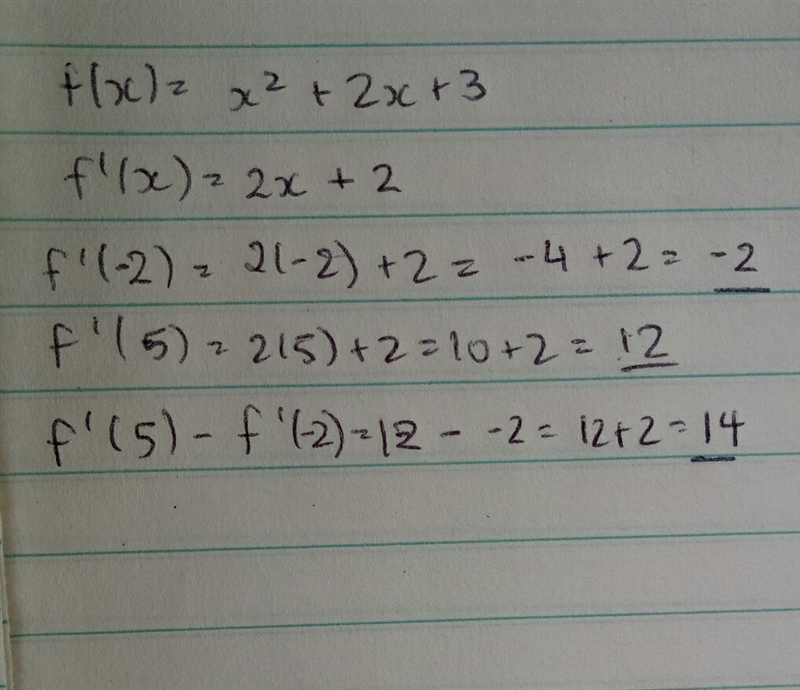 f(x) = x² + 2x + 3
f'(x) = 2x + 2
f'(-2) = 2(-2) + 2 = -4 + 2 = -2
f'(5) = 2(5) + 2 = 10 + 2 = 12
f'(5) - f'(-2) = 12 - -2 = 12 + 2 = 14